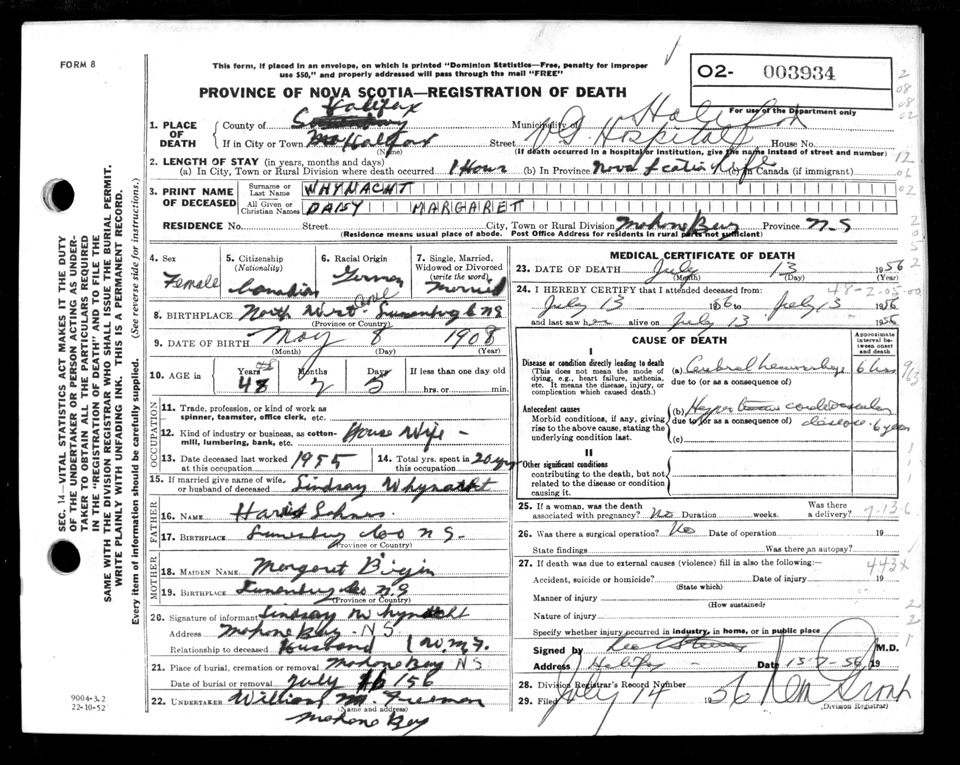 FORM 8
This form, if placed in an envelope, on which is printed "Dominion Statistics—Free, penalty for improper
use $50," and properly addressed will pass through the mail "FREE"
O2- 003934
For use of the Department only
PROVINCE OF NOVA SCOTIA—REGISTRATION OF DEATH
Halifax
1. PLACE OF DEATH
County of
Municipality of Halifax
If in City or Town Halifax Street Hospital House No.
(Name) (If death occurred in a hospital or institution, give the name instead of street and number)
2. LENGTH OF STAY (in years, months and days)
(a) In City, Town or Rural Division where death occurred 1 Hour (b) In Province Nova Scotia Life (c) In Canada (if immigrant)
3. PRINT NAME OF DECEASED
Surname or Last Name WHYNACHT
All Given or Christian Names DAISY MARGARET
RESIDENCE No. Street City, Town or Rural Division Mahone Bay Province N.S
(Residence means usual place of abode. Post Office Address for residents in rural parts not sufficient)
4. Sex Female
5. Citizenship (Nationality) Canadian
6. Racial Origin German
7. Single, Married, Widowed or Divorced (write the word) Married
8. BIRTHPLACE North West Lunenburg C NS
(Province or Country)
9. DATE OF BIRTH May 8 1908
(Month) (Day) (Year)
10. AGE in Years 48 Months 2 Days 5 If less than one day old
hrs. or min.
OCCUPATION
11. Trade, profession, or kind of work as spinner, teamster, office clerk, etc.
12. Kind of industry or business, as cotton-mill, lumbering, bank, etc. House Wife
13. Date deceased last worked at this occupation 1955
14. Total yrs. spent in this occupation 20 yrs
15. If married give name of wife or husband of deceased Lindsay Whynacht
FATHER
16. NAME
17. BIRTHPLACE Lunenburg Co N S.
(Province or Country)
MOTHER
18. MAIDEN NAME Margaret
19. BIRTHPLACE Lunenburg Co N.S
(Province or Country)
20. Signature of informant Lindsay Whynacht
Address Mahone Bay - N S
Relationship to deceased Husband
21. Place of burial, cremation or removal Mahone Bay NS
Date of burial or removal July 16/56
22. UNDERTAKER William M. Freeman
(Name and address)
Mahone Bay
MEDICAL CERTIFICATE OF DEATH
23. DATE OF DEATH July 13 1956
(Month) (Day) (Year)
48-2-05-00
24. I HEREBY CERTIFY that I attended deceased from:
July 13 1956 to July 13 1956
and last saw her alive on July 13 1956
CAUSE OF DEATH
Approximate interval between onset and death
I
Disease or condition directly leading to death
(This does not mean the mode of dying, e.g., heart failure, asthenia, etc. It means the disease, injury, or complication which caused death.)
(a) Cerebral hemorrhage 6 hrs
due to (or as a consequence of)
Antecedent causes
Morbid conditions, if any, giving rise to the above cause, stating the underlying condition last.
(b) Hyper cardiovascular
due to (or as a consequence of) disease. 6 years
(c)
II
Other significant conditions
contributing to the death, but not related to the disease or condition causing it.
25. If a woman, was the death associated with pregnancy? No Duration weeks. Was there a delivery?
7-13-6
26. Was there a surgical operation? No Date of operation 19
State findings Was there an autopsy?
27. If death was due to external causes (violence) fill in also the following:
443X
Accident, suicide or homicide? Date of injury 19
(State which)
Manner of injury
(How sustained)
Nature of injury
Specify whether injury occurred in industry, in home, or in public place
Signed by M.D.
Address Halifax Date 13-7-56 19
28. Division Registrar's Record Number
29. Filed July 14 1956
(Division Registrar)
SEC. 14—VITAL STATISTICS ACT MAKES IT THE DUTY
OF THE UNDERTAKER OR PERSON ACTING AS UNDER-
TAKER TO OBTAIN ALL THE PARTICULARS REQUIRED
IN THE "REGISTRATION OF DEATH" AND TO FILE THE
SAME WITH THE DIVISION REGISTRAR WHO SHALL ISSUE THE BURIAL PERMIT.
WRITE PLAINLY WITH UNFADING INK. THIS IS A PERMANENT RECORD.
Every item of information should be carefully supplied. (See reverse side for instructions.)
9004-3.2
22-10-52